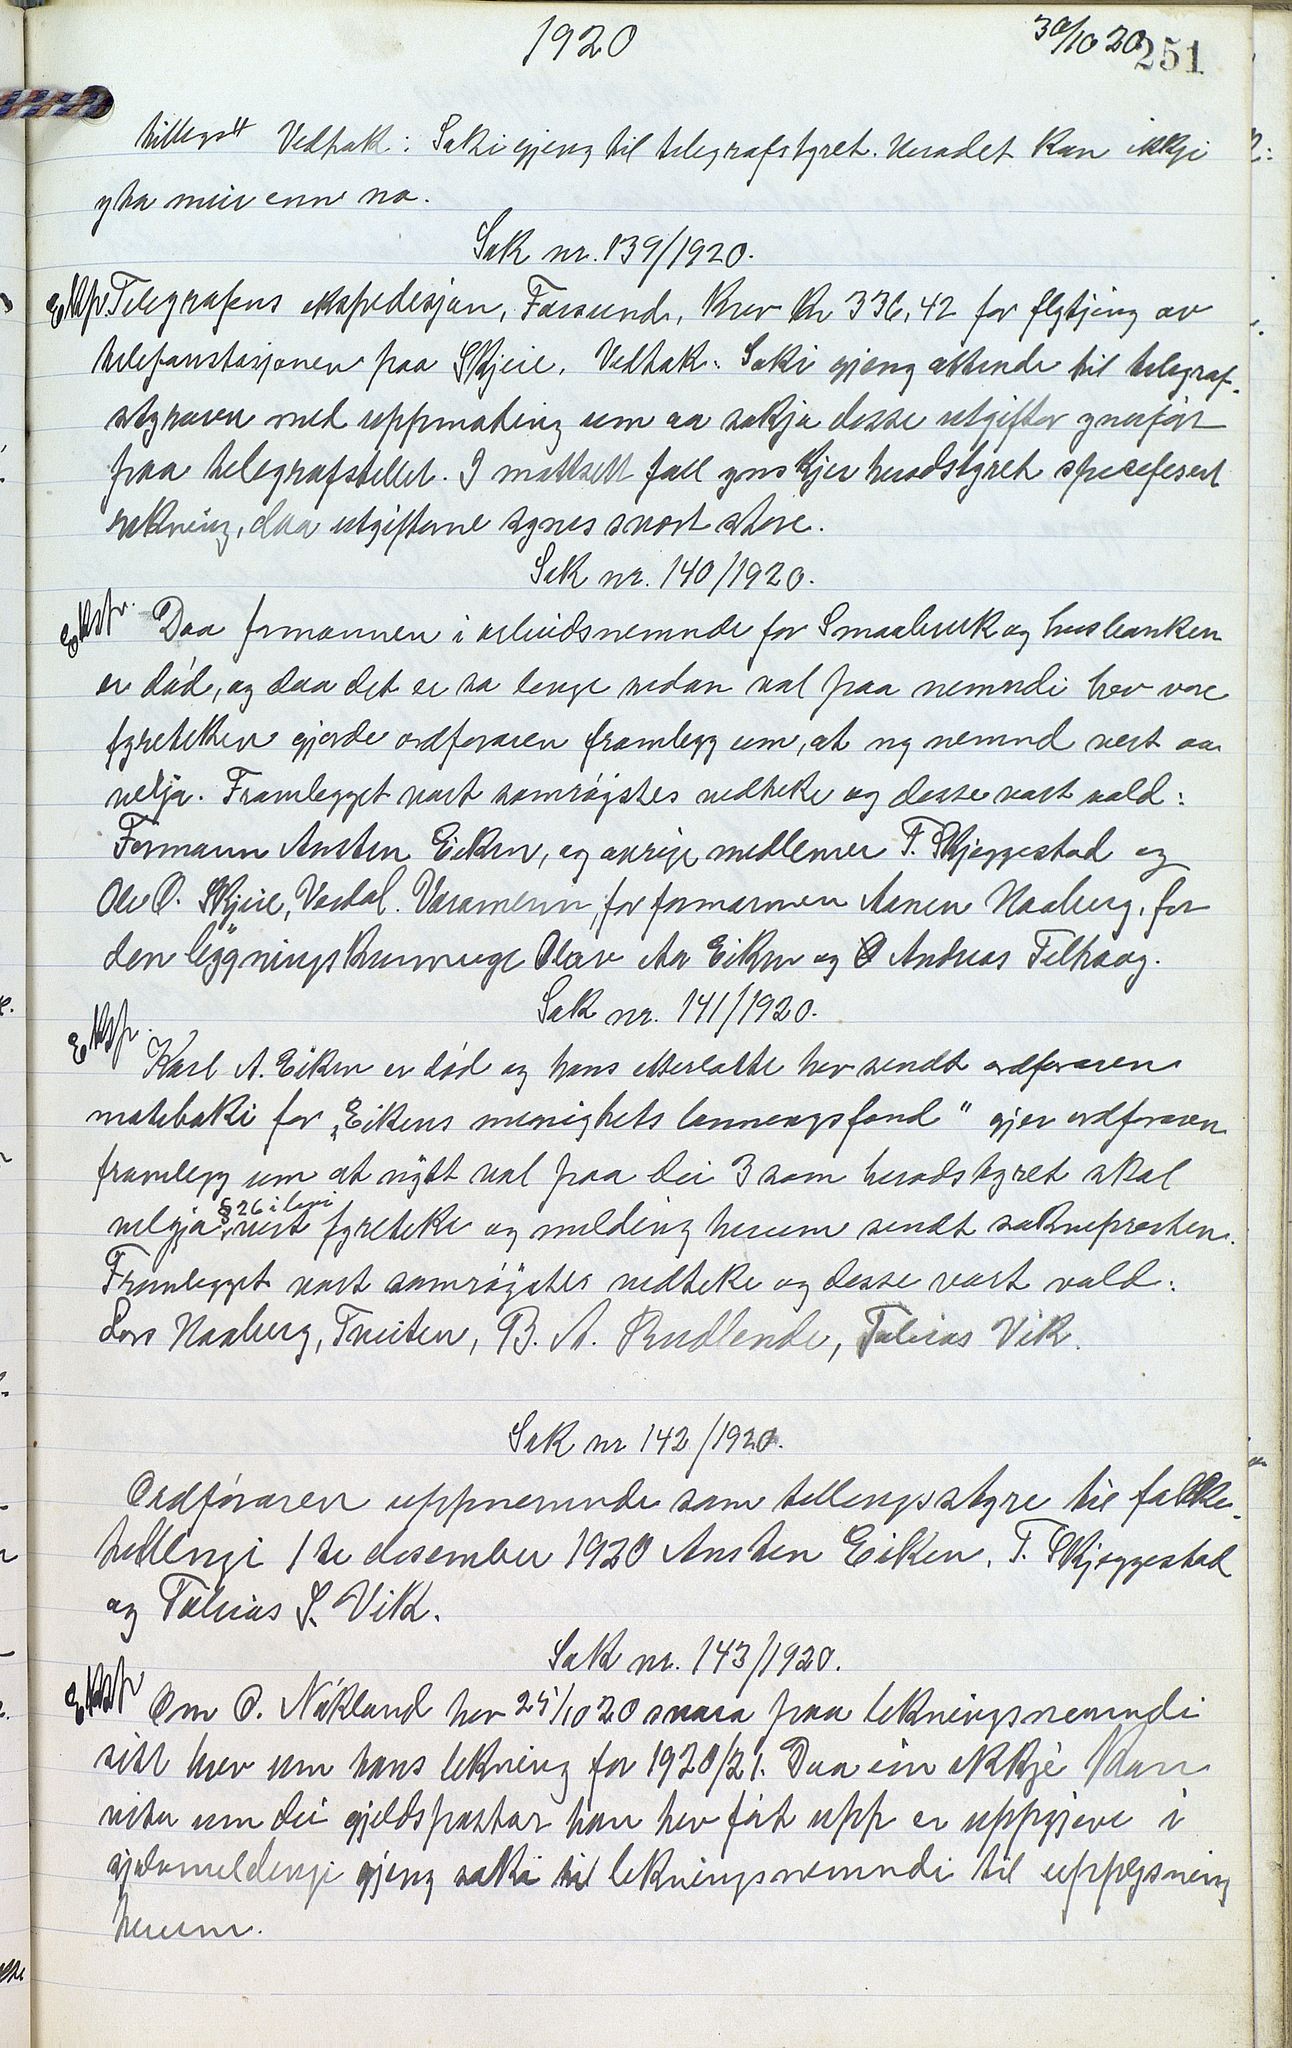 1920
30/10 20
251
tillegs Vedtak: Saki gjeng til telegrafstyret. Heradet kan ikkje
yta meir enn no.
Sak nr. 139/1920.
Eksp. Telegrafens ekspedisjon, Farsund, krev kr 336,42 for flytjing av
telefonstasjonen paa Skjeie. Vedtak: Saki gjeng attende til telegraf-
styraren med uppmoding um aa søkja desse utgifter yverført
paa telegrafstellet. I motsett fall ynskjer heradstyret speceferert
rekning, daa utgifterne synes svært store.
Sak nr. 140/1920.
Eksp. Daa formannen i arbeidsnemnde for Smaabruk og husbanken
er død, og daa det er so lenge sedan val paa nemndi hev vore
fyreteken gjorde ordføraren framlegg um, at ny nemnd vert aa
velja. Framlegget vart samrøystes vedteke og desse vart vald:
Formann Ansten Eiken, og øvrige medlemer T. Skjeggestad og
Ole O. Skjeie, Vasdal. Varamenn, for formannen Aanen Naaberg, for
den byggningskunnuge Olav Aa Eiken og O Andreas Telhaag.
Sak nr. 141/1920.
Eksp. Karl A. Eiken er død og hans etterlatte hev sendt ordføraren
møteboki for „Eikens menighets lønningsfond" gjer ordføraren
framlegg um at nytt val paa dei 3 som heradstyret skal
velgja § 26 i lovi vert fyreteke og melding herum sendt sokneprosten.
Framlegget vart samrøystes vedteke og desse vart vald:
Lars Naaberg, Tveiten, B. A. Rudlende, Tobias Vik.
Sak nr 142/1920.
Ordføraren uppnemnde som tellingsstyre til folke-
tellengi 1ste desember 1920 Ansten Eiken, T. Skjeggestad
og Tobias S. Vik.
Sak nr. 143/1920.
Eksp Om O. Nökland hev 25/10 20 svara paa likningsnemndi
sitt brev um hans likning for 1920/21. Daa ein ikkje kan
vita um dei gjeldspostar han hev ført upp er uppgjeve i
sjølvmeldingi gjeng saki til likningsnemndi til upplysning
herum.